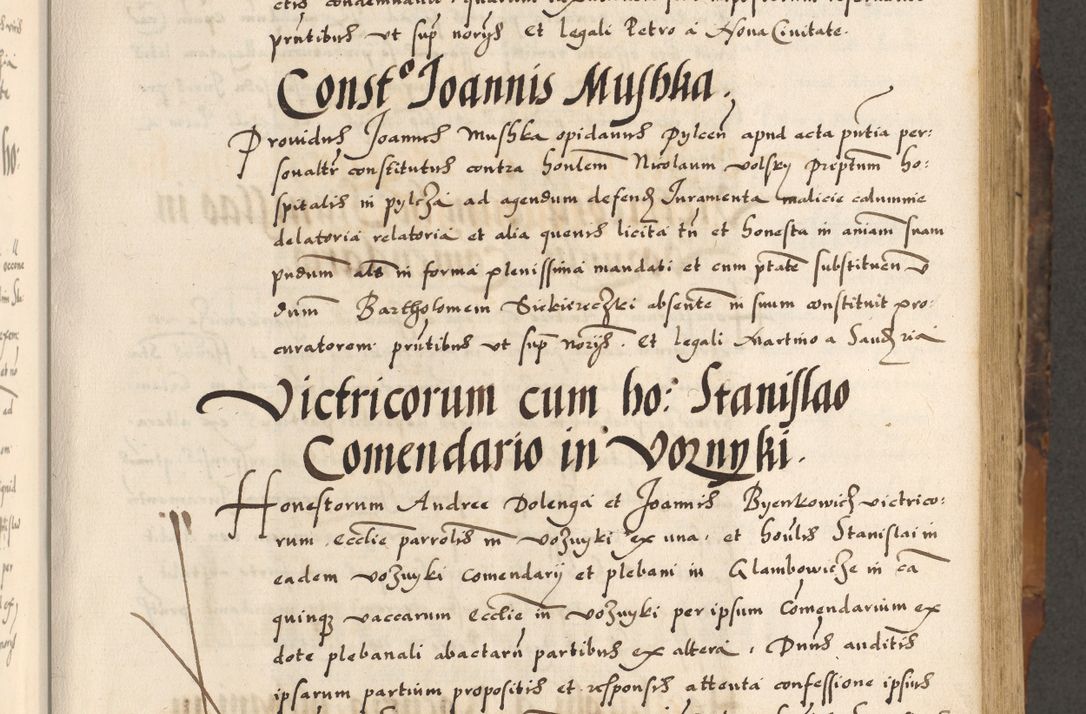 prntibus ut sup notus Et legali Petro a Nova Civitate.
Consto Joannis Mushka.
Providus Joannes Mushka opidanus Pylcen apud acta pntia per:
sonalr constitutus contra honlem Nicolaum Volsky preptum ho:
spitalis in pylcza ad agendum defend Juramenta malicie calumnie
delatoria relatoria et alia quevis licita tn et honesta in aniam suam
pndum als in forma plenissima mandati et cum ptate substituen
dum Bartholomeum Siekiereczki absente in suum constituit pro:
curatorem prntibus ut sup notys. Et legali Martino a Sandz ria
Victricorum cum ho: Stanislao
Comendario in Voznyki.
Honestorum Andree Dolenga et Joannis Byenkowicz victrico:
rum Ecclie parrolis in Voznyki ex una, et honlis Stanislai in
eadem Voznyki Comendarij et plebani in Glambowicze in ca
quinq vaccarum Ecclie in Voznyki per ipsum Comendarium ex
dote plebanali abactaru partibus ex altera, Dnus auditis
ipsarum partium propositis et responsis attenta confessione ipsius